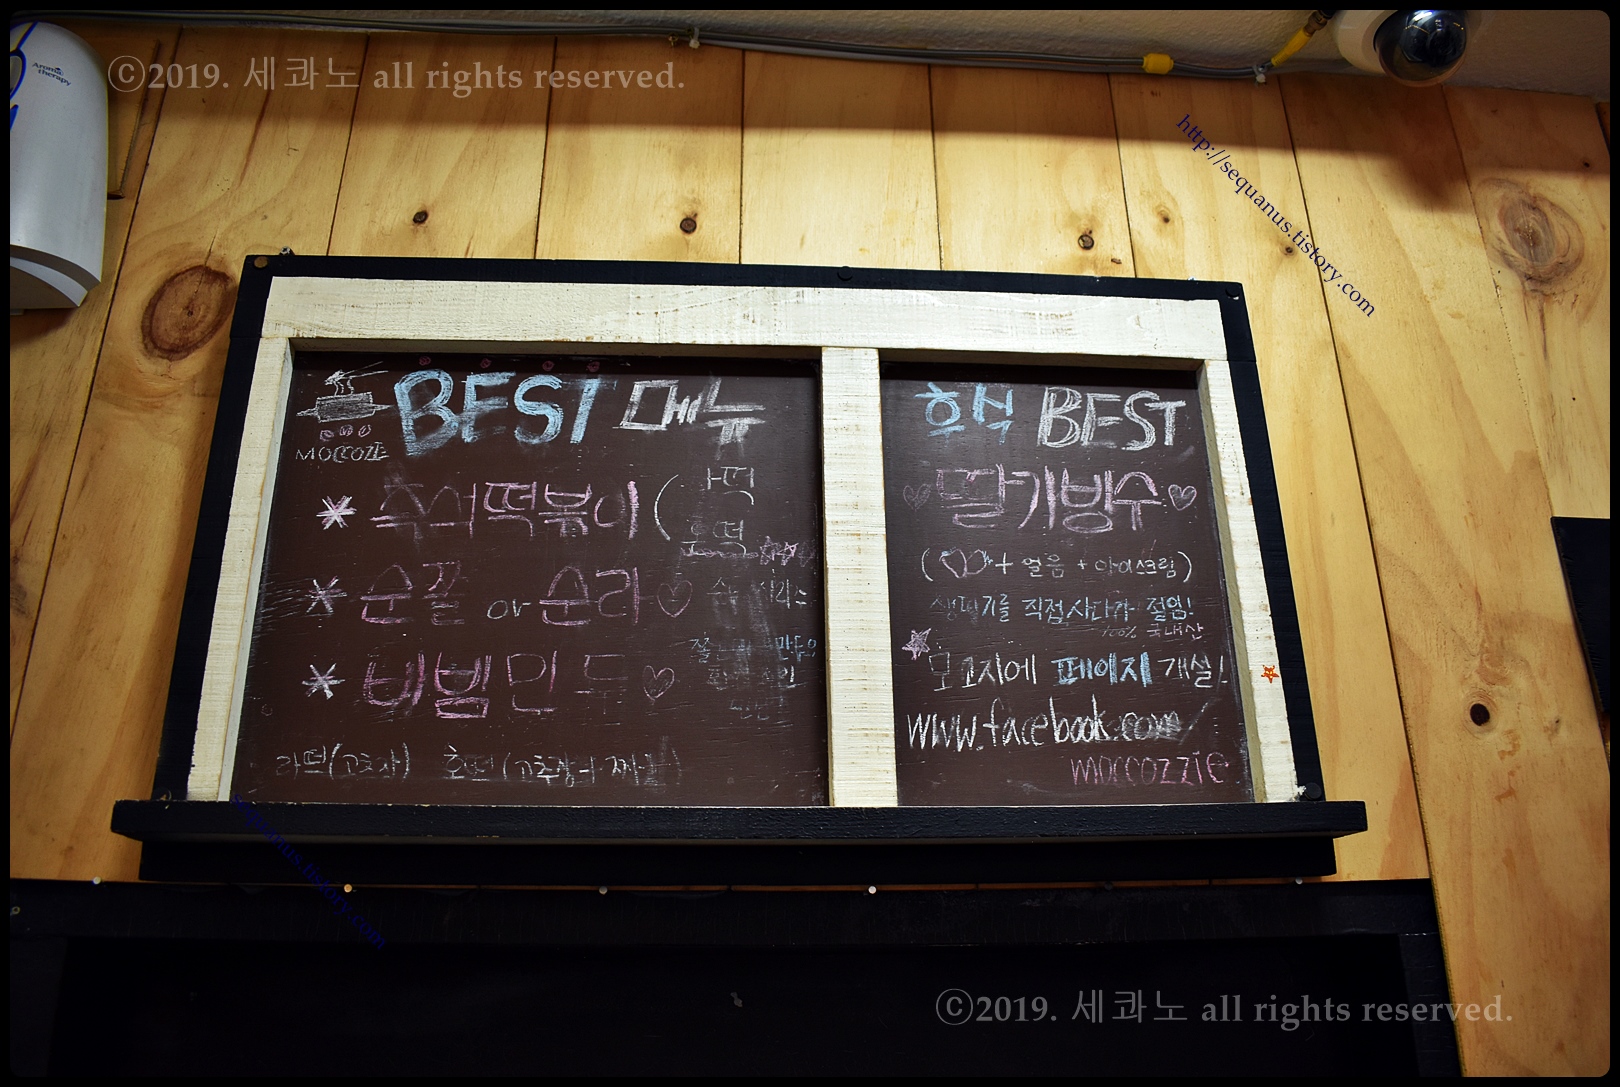 Aroma
therapy
©2019. 세콰노 all rights reserved.
http://sequanus.tistory.com
BEST 메뉴
MOCCOZZIE
* 즉석떡볶이 (라떡
호떡
* 순꼴 or 순라 ♡
* 비빔만두 ♡
라떡(고추장) 호떡(고추장+짜장)
후식 BEST
♡딸기빙수♡
(♡+얼음+아이스크림)
생딸기를 직접사다가 절임!
100% 국내산
모꼬지에 페이지 개설!
www.facebook.com/
moccozzie
sequanus.tistory.com
©2019. 세콰노 all rights reserved.